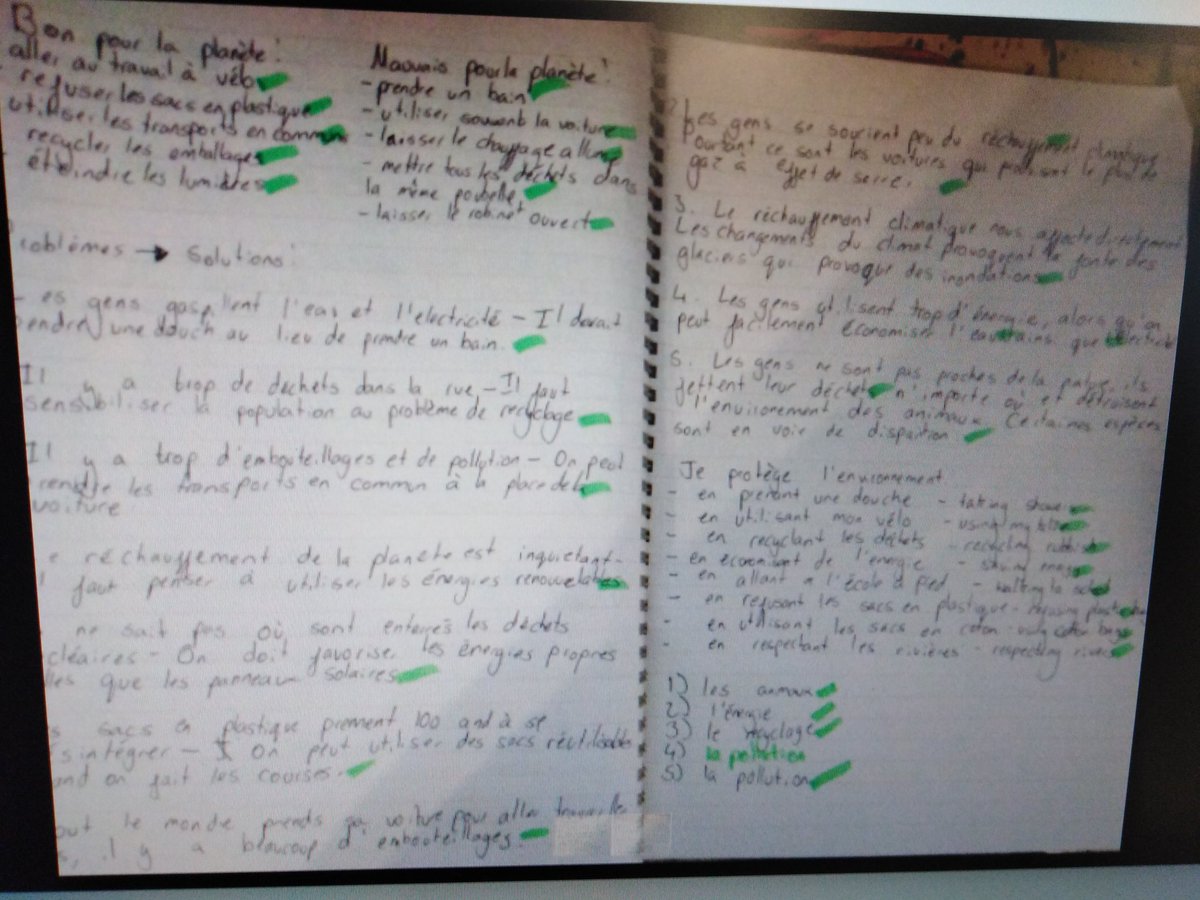 Bon pour la planète!
aller au travail à vélo
refuser les sacs en plastique
utiliser les transports en commun
recycler les emballages
éteindre les lumières
Mauvais pour la planète!
- prendre un bain
- utiliser souvent la voiture
- laisser le chauffage allumé
- mettre tous les déchets dans
la même poubelle
- laisser le robinet ouvert
problèmes → Solutions:
es gens gaspillent l'eau et l'electricité - Il devrait
prendre une douch au lieu de prendre un bain.
Il y a trop de dechets dans la rue - Il faut
sensibiliser la population au problème de recyclage
Il y a trop d'embouteillages et de pollution - On peut
rendre les transports en commun à la place de la
voiture
e réchauffement de la planète est inquietant -
faut penser à utiliser les énergies renouvelables
ne sait pas où sont enterrés les déchets
cléaires - On doit favoriser les énergies propres
lles que les panneaux solaires
sacs en plastique prennent 100 and à se
sintégrer - On peut utiliser des sacs réutilisables
and on fait les courses.
out le monde prends sa voiture pour aller travailler
s, il y a beaucoup d'embouteillages.
2. Les gens se soucient peu du réchauffement climatique
Pourtant ce sont les voitures qui produisent le plus de
gaz à effet de serre.
3. Le réchauffement climatique nous affecte directement
Les changements du climat provoquent la fonte des
glaciers qui provoque des inondations
4. Les gens utilisent trop d'énergie, alors qu'on
peut facilement économiser l'eau
5. Les gens ne sont pas proches de la ils
jettent leur déchets n'importe où et détruisent
l'environement des animaux. Certaines espèces
sont en voie de disparition.
Je protège l'environnement
- en prenant une douche - taking shower
- en utilisant mon vélo - using my bike
- en recyclant les déchets - recycling rubbish
- en economisant de l'energie - saving energy
- en allant a l'école à pied - walking to school
- en refusant les sacs en plastique - refusing plastic bag
- en utilisant les sacs en coton - using cotton bags
- en respectant les rivières - respecting rivers
1) les animaux
2) l'énergie
3) le recyclage
4) la pollution
5) la pollution